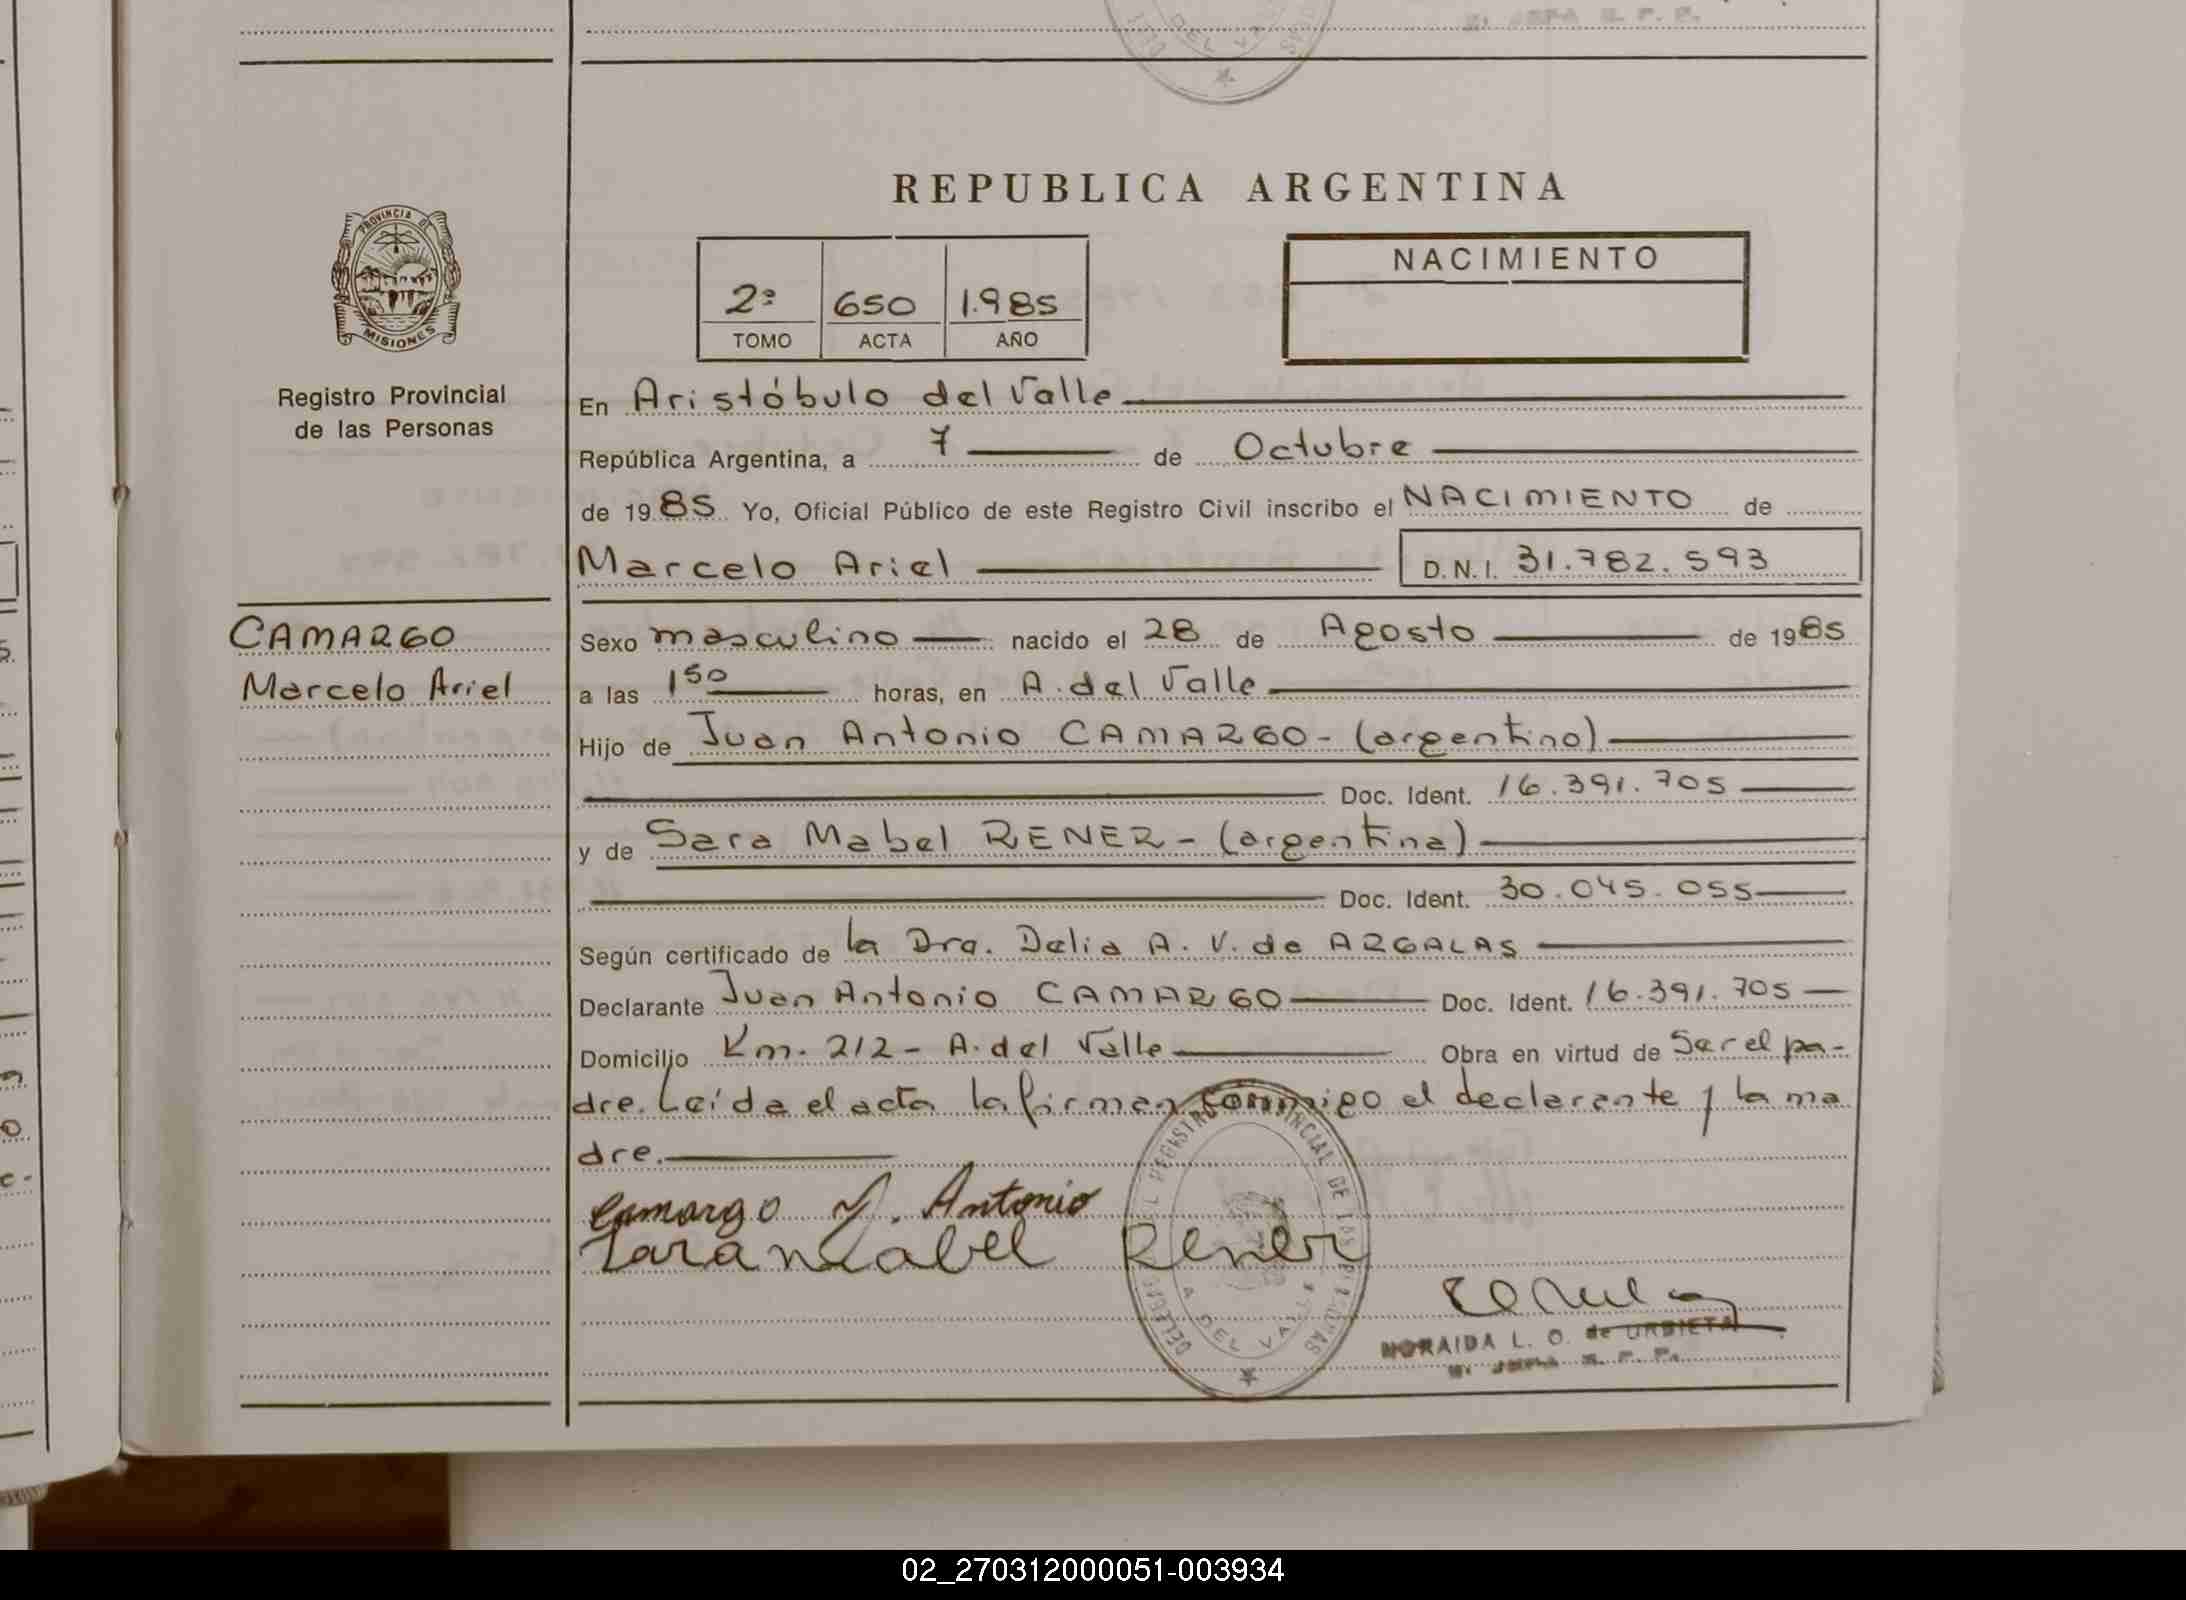 REPUBLICA ARGENTINA
PROVINCIA DE
MISIONES
Registro Provincial
de las Personas
2º 650 1.985
TOMO ACTA AÑO
NACIMIENTO
En Aristóbulo del Valle
República Argentina, a 7 de Octubre
de 1985 Yo, Oficial Público de este Registro Civil inscribo el NACIMIENTO de
Marcelo Ariel D.N.I. 31.782.593
CAMARGO
Marcelo Ariel
Sexo masculino nacido el 28 de Agosto de 1985
a las 1 50 horas, en A. del Valle
Hijo de Juan Antonio CAMARGO - (argentino)
Doc. Ident. 16.391.705
y de Sara Mabel RENER - (argentina)
Doc. Ident. 30.045.055
Según certificado de la Dra. Delia A. V. de ARGALAS
Declarante Juan Antonio CAMARGO Doc. Ident. 16.391.705
Domicilio Km. 212 - A. del Valle Obra en virtud de Ser el pa-
dre. Leída el acta la firman conmigo el declarante y la ma
dre.
Camargo J. Antonio
Sara Mabel Rener
REGISTRO PROVINCIAL DE LAS PERSONAS
DEL VALLE
NORAIDA L. O. de URBIETA
02_270312000051-003934